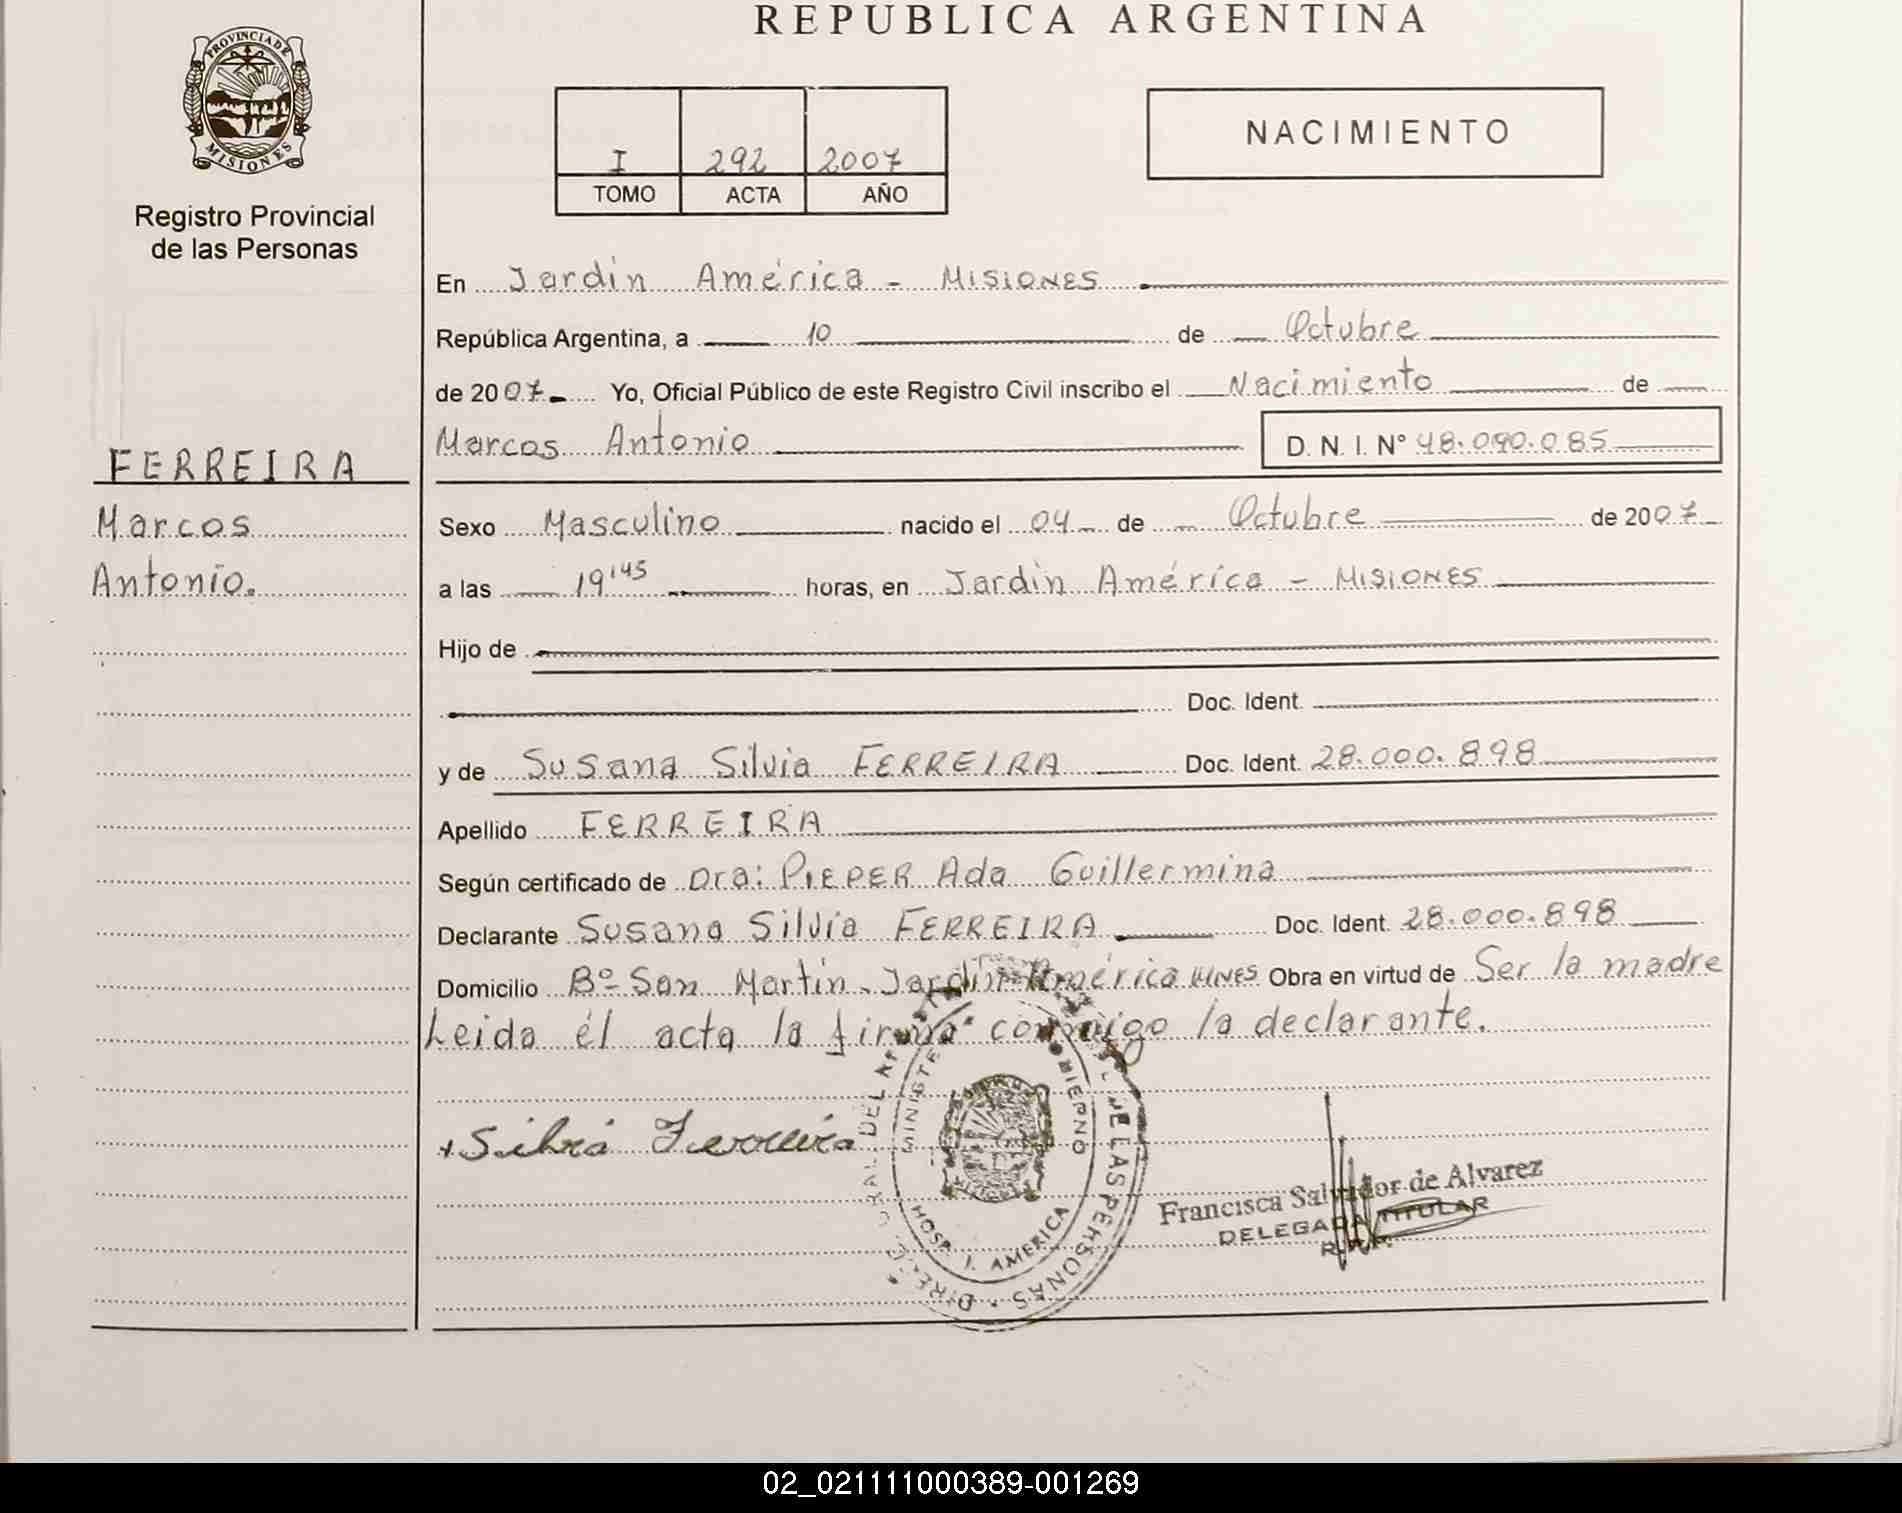 REPUBLICA ARGENTINA
PROVINCIA DE
MISIONES
Registro Provincial
de las Personas
I 292 2007
TOMO ACTA AÑO
NACIMIENTO
En Jardin América - MISIONES
República Argentina, a 10 de Octubre
de 2007 Yo, Oficial Público de este Registro Civil inscribo el Nacimiento de
Marcos Antonio D. N. I. N° 48.090.085
FERREIRA
Marcos
Antonio.
Sexo Masculino nacido el 04 de Octubre de 2007
a las 19'45 horas, en Jardin América - MISIONES
Hijo de
Doc. Ident.
y de Susana Silvia FERREIRA Doc. Ident. 28.000.898
Apellido FERREIRA
Según certificado de Dra: PIEPER Ada Guillermina
Declarante Susana Silvia FERREIRA Doc. Ident. 28.000.898
Domicilio Bº San Martin - Jardin América MNES Obra en virtud de Ser la madre
Leida él acta la firma conmigo la declarante.
Silvia Ferreira
MINISTE OBIERNO
HOSP. J. AMERICA
DE LAS PERSONAS
Francisca Salvador de Alvarez
DELEGADA TITULAR
02_021111000389-001269